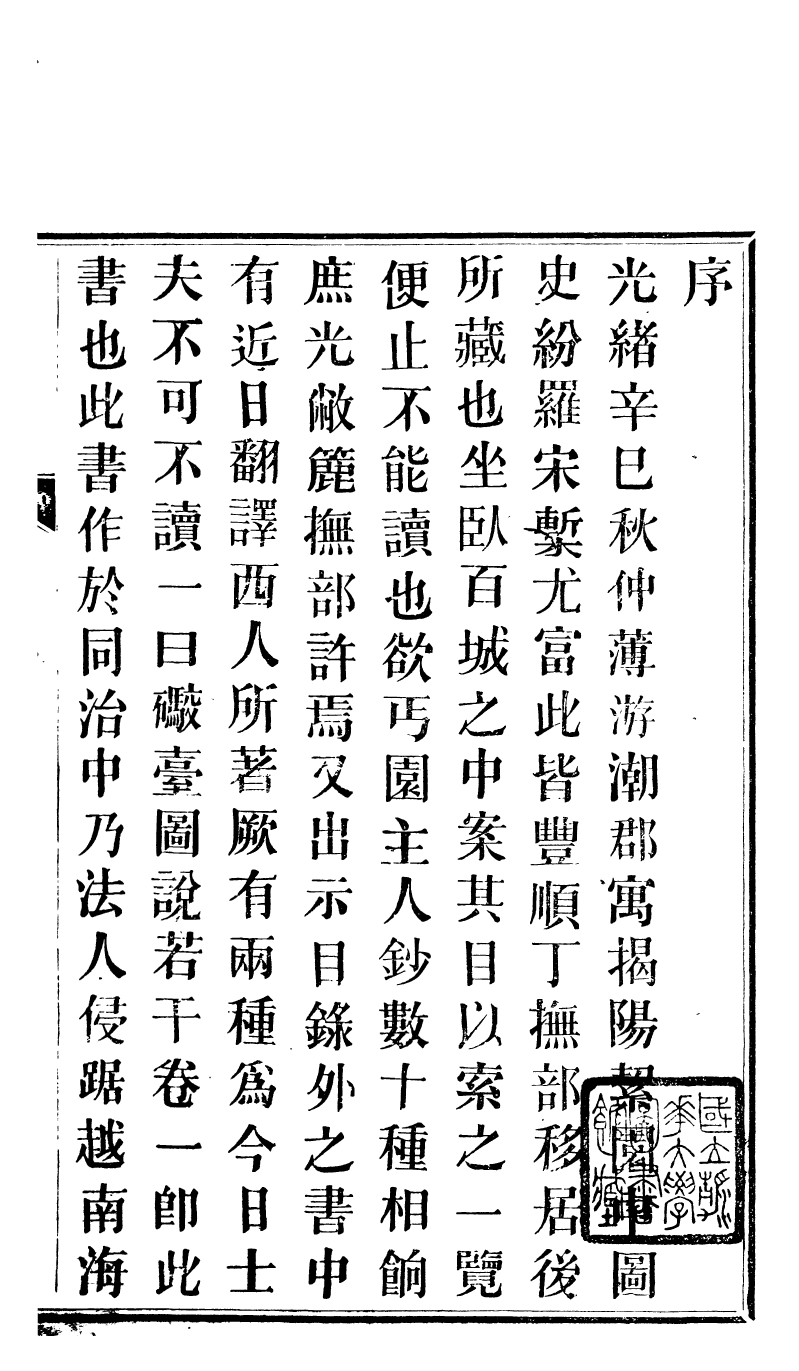 序
光緒辛巳秋仲薄游潮郡寓揭陽絜園中圖
史紛羅宋槧尤富此皆豐順丁撫部移居後
所藏也坐臥百城之中案其目以索之一覽
便止不能讀也欲丐園主人鈔數十種相餉
庶光敝簏撫部許焉又出示目錄外之書中
有近日翻譯西人所著厥有兩種爲今日士
夫不可不讀一曰礮臺圖說若干卷一卽此
書也此書作於同治中乃法人侵踞越南海
國立清
華大學
圖書
館藏